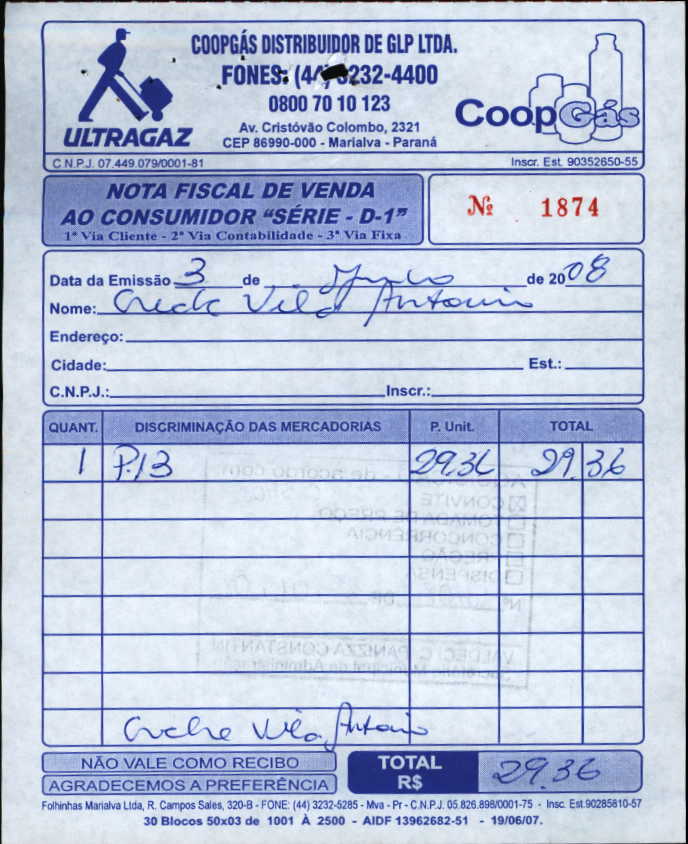 COOPGÁS DISTRIBUIDOR DE GLP LTDA.
FONES: (44) 3232-4400
0800 70 10 123
Av. Cristóvão Colombo, 2321
CEP 86990-000 - Marialva - Paraná
ULTRAGAZ
CoopGás
C.N.P.J. 07.449.079/0001-81
Inscr. Est. 90352650-55
NOTA FISCAL DE VENDA
AO CONSUMIDOR "SÉRIE - D-1"
1ª Via Cliente - 2ª Via Contabilidade - 3ª Via Fixa
Nº 1874
Data da Emissão 3 de de 2008
Nome: Vila Antonio
Endereço:
Cidade: Est.:
C.N.P.J.: Inscr.:
QUANT. DISCRIMINAÇÃO DAS MERCADORIAS P. Unit. TOTAL
1 P.13 29,36 29,36
Creche Vila Antonio
NÃO VALE COMO RECIBO
AGRADECEMOS A PREFERÊNCIA
TOTAL
R$ 29,36
Folhinhas Marialva Ltda, R. Campos Sales, 320-B - FONE: (44) 3232-5285 - Mva - Pr - C.N.P.J. 05.826.898/0001-75 - Insc. Est.90285810-57
30 Blocos 50x03 de 1001 À 2500 - AIDF 13962682-51 - 19/06/07.